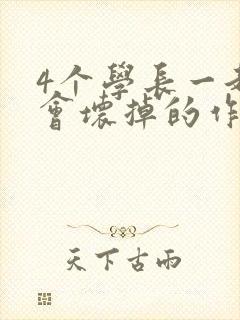 4个學長一
會壞掉的作
天下古雨